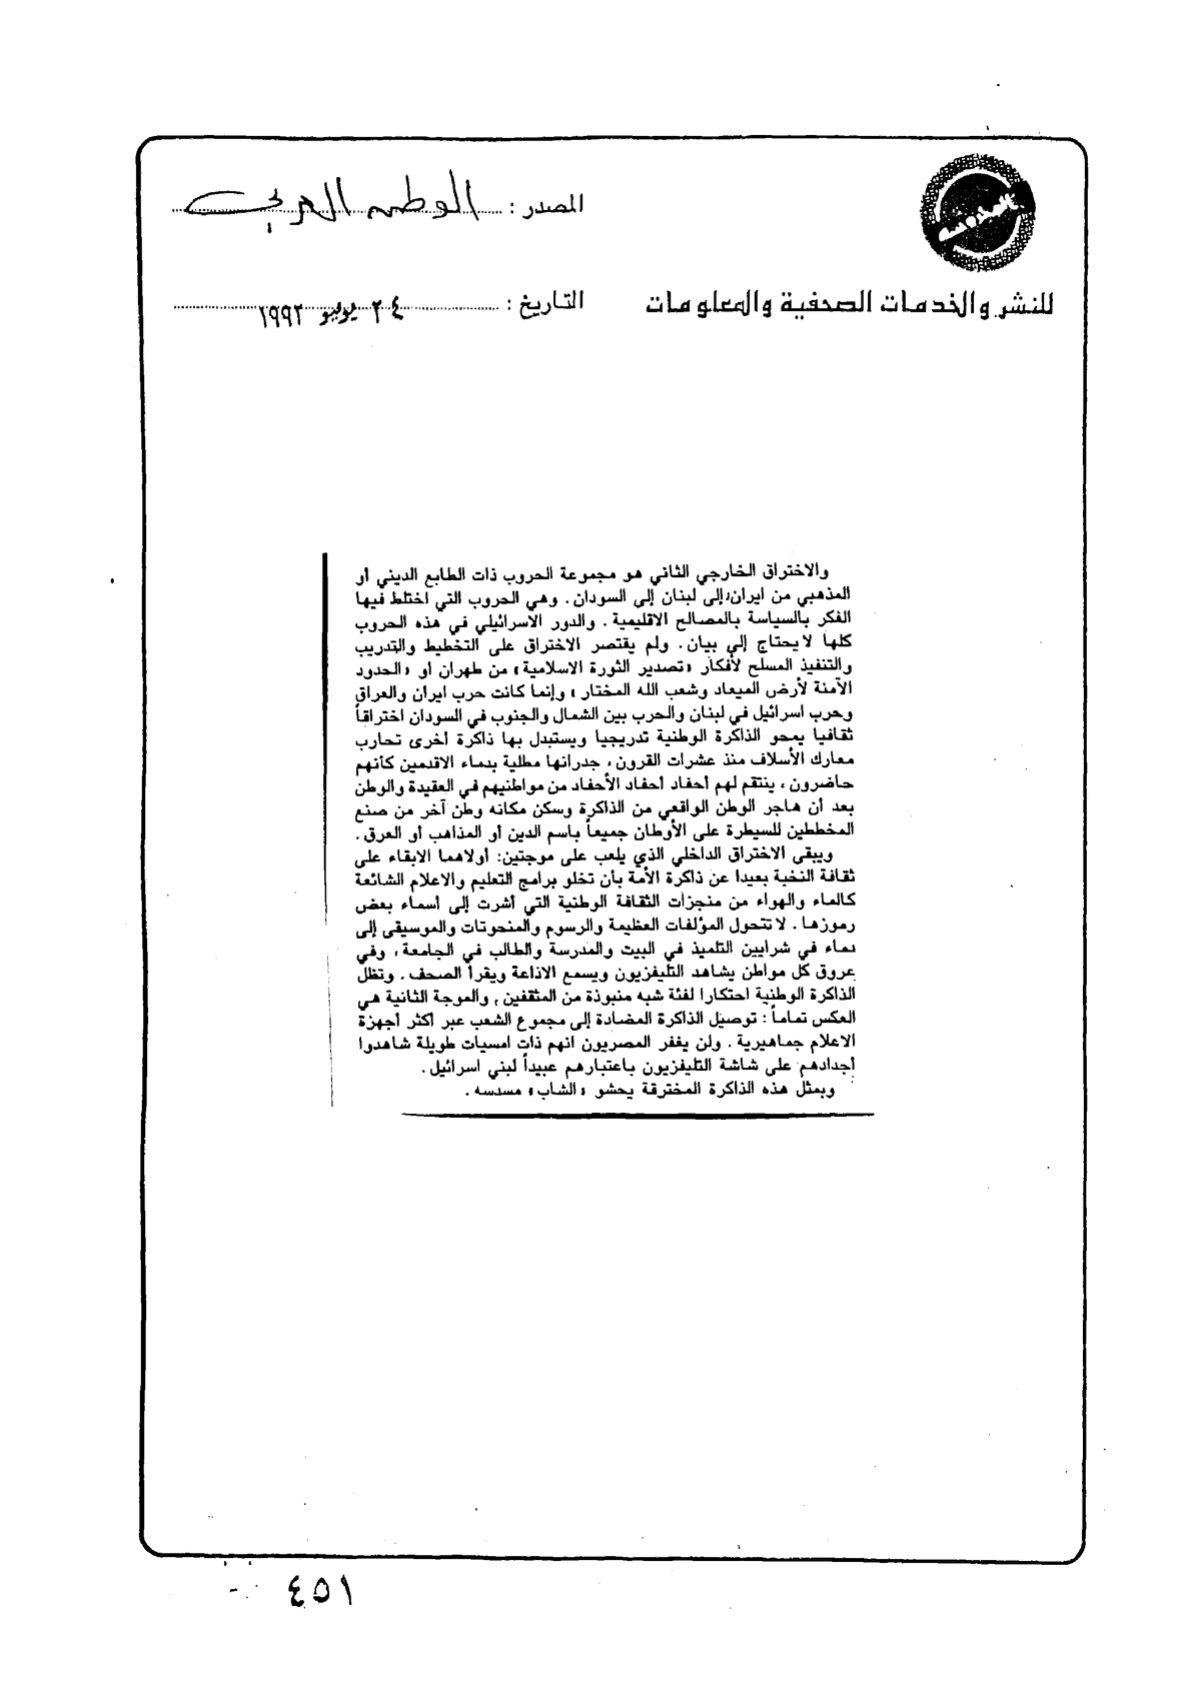 المصدر : الوطن العربي
للنشر والخدمات الصحفية والمعلومات
التاريخ : ٢٤ يوليو ١٩٩٢
والاختراق الخارجي الثاني هو مجموعة الحروب ذات الطابع الديني أو
المذهبي من ايران إلى لبنان إلى السودان. وهي الحروب التي اختلط فيها
الفكر بالسياسة بالمصالح الاقليمية. والدور الاسرائيلي في هذه الحروب
كلها لا يحتاج إلى بيان. ولم يقتصر الاختراق على التخطيط والتدريب
والتنفيذ المسلح لأفكار «تصدير الثورة الاسلامية» من طهران أو «الحدود
الآمنة لأرض الميعاد وشعب الله المختار» وإنما كانت حرب ايران والعراق
وحرب اسرائيل في لبنان والحرب بين الشمال والجنوب في السودان اختراقاً
ثقافيا يمحو الذاكرة الوطنية تدريجيا ويستبدل بها ذاكرة أخرى تحارب
معارك الأسلاف منذ عشرات القرون، جدرانها مطلية بدماء الاقدمين كأنهم
حاضرون، ينتقم لهم أحفاد أحفاد الأحفاد من مواطنيهم في العقيدة والوطن
بعد أن هاجر الوطن الواقعي من الذاكرة وسكن مكانه وطن آخر من صنع
المخططين للسيطرة على الأوطان جميعاً باسم الدين أو المذاهب أو العرق.
ويبقى الاختراق الداخلي الذي يلعب على موجتين: أولاهما الابقاء على
ثقافة النخبة بعيدا عن ذاكرة الأمة بأن تخلو برامج التعليم والاعلام الشائعة
كالماء والهواء من منجزات الثقافة الوطنية التي أشرت إلى أسماء بعض
رموزها. لا تتحول المؤلفات العظيمة والرسوم والمنحوتات والموسيقى إلى
دماء في شرايين التلميذ في البيت والمدرسة والطالب في الجامعة، وفي
عروق كل مواطن يشاهد التليفزيون ويسمع الاذاعة ويقرأ الصحف. وتظل
الذاكرة الوطنية احتكارا لفئة شبه منبوذة من المثقفين، والموجة الثانية هي
العكس تماماً: توصيل الذاكرة المضادة إلى مجموع الشعب عبر أكثر أجهزة
الاعلام جماهيرية. ولن يغفر المصريون انهم ذات امسيات طويلة شاهدوا
أجدادهم على شاشة التليفزيون باعتبارهم عبيداً لبني اسرائيل.
وبمثل هذه الذاكرة المخترقة يحشو «الشاب» مسدسه.
٤٥١